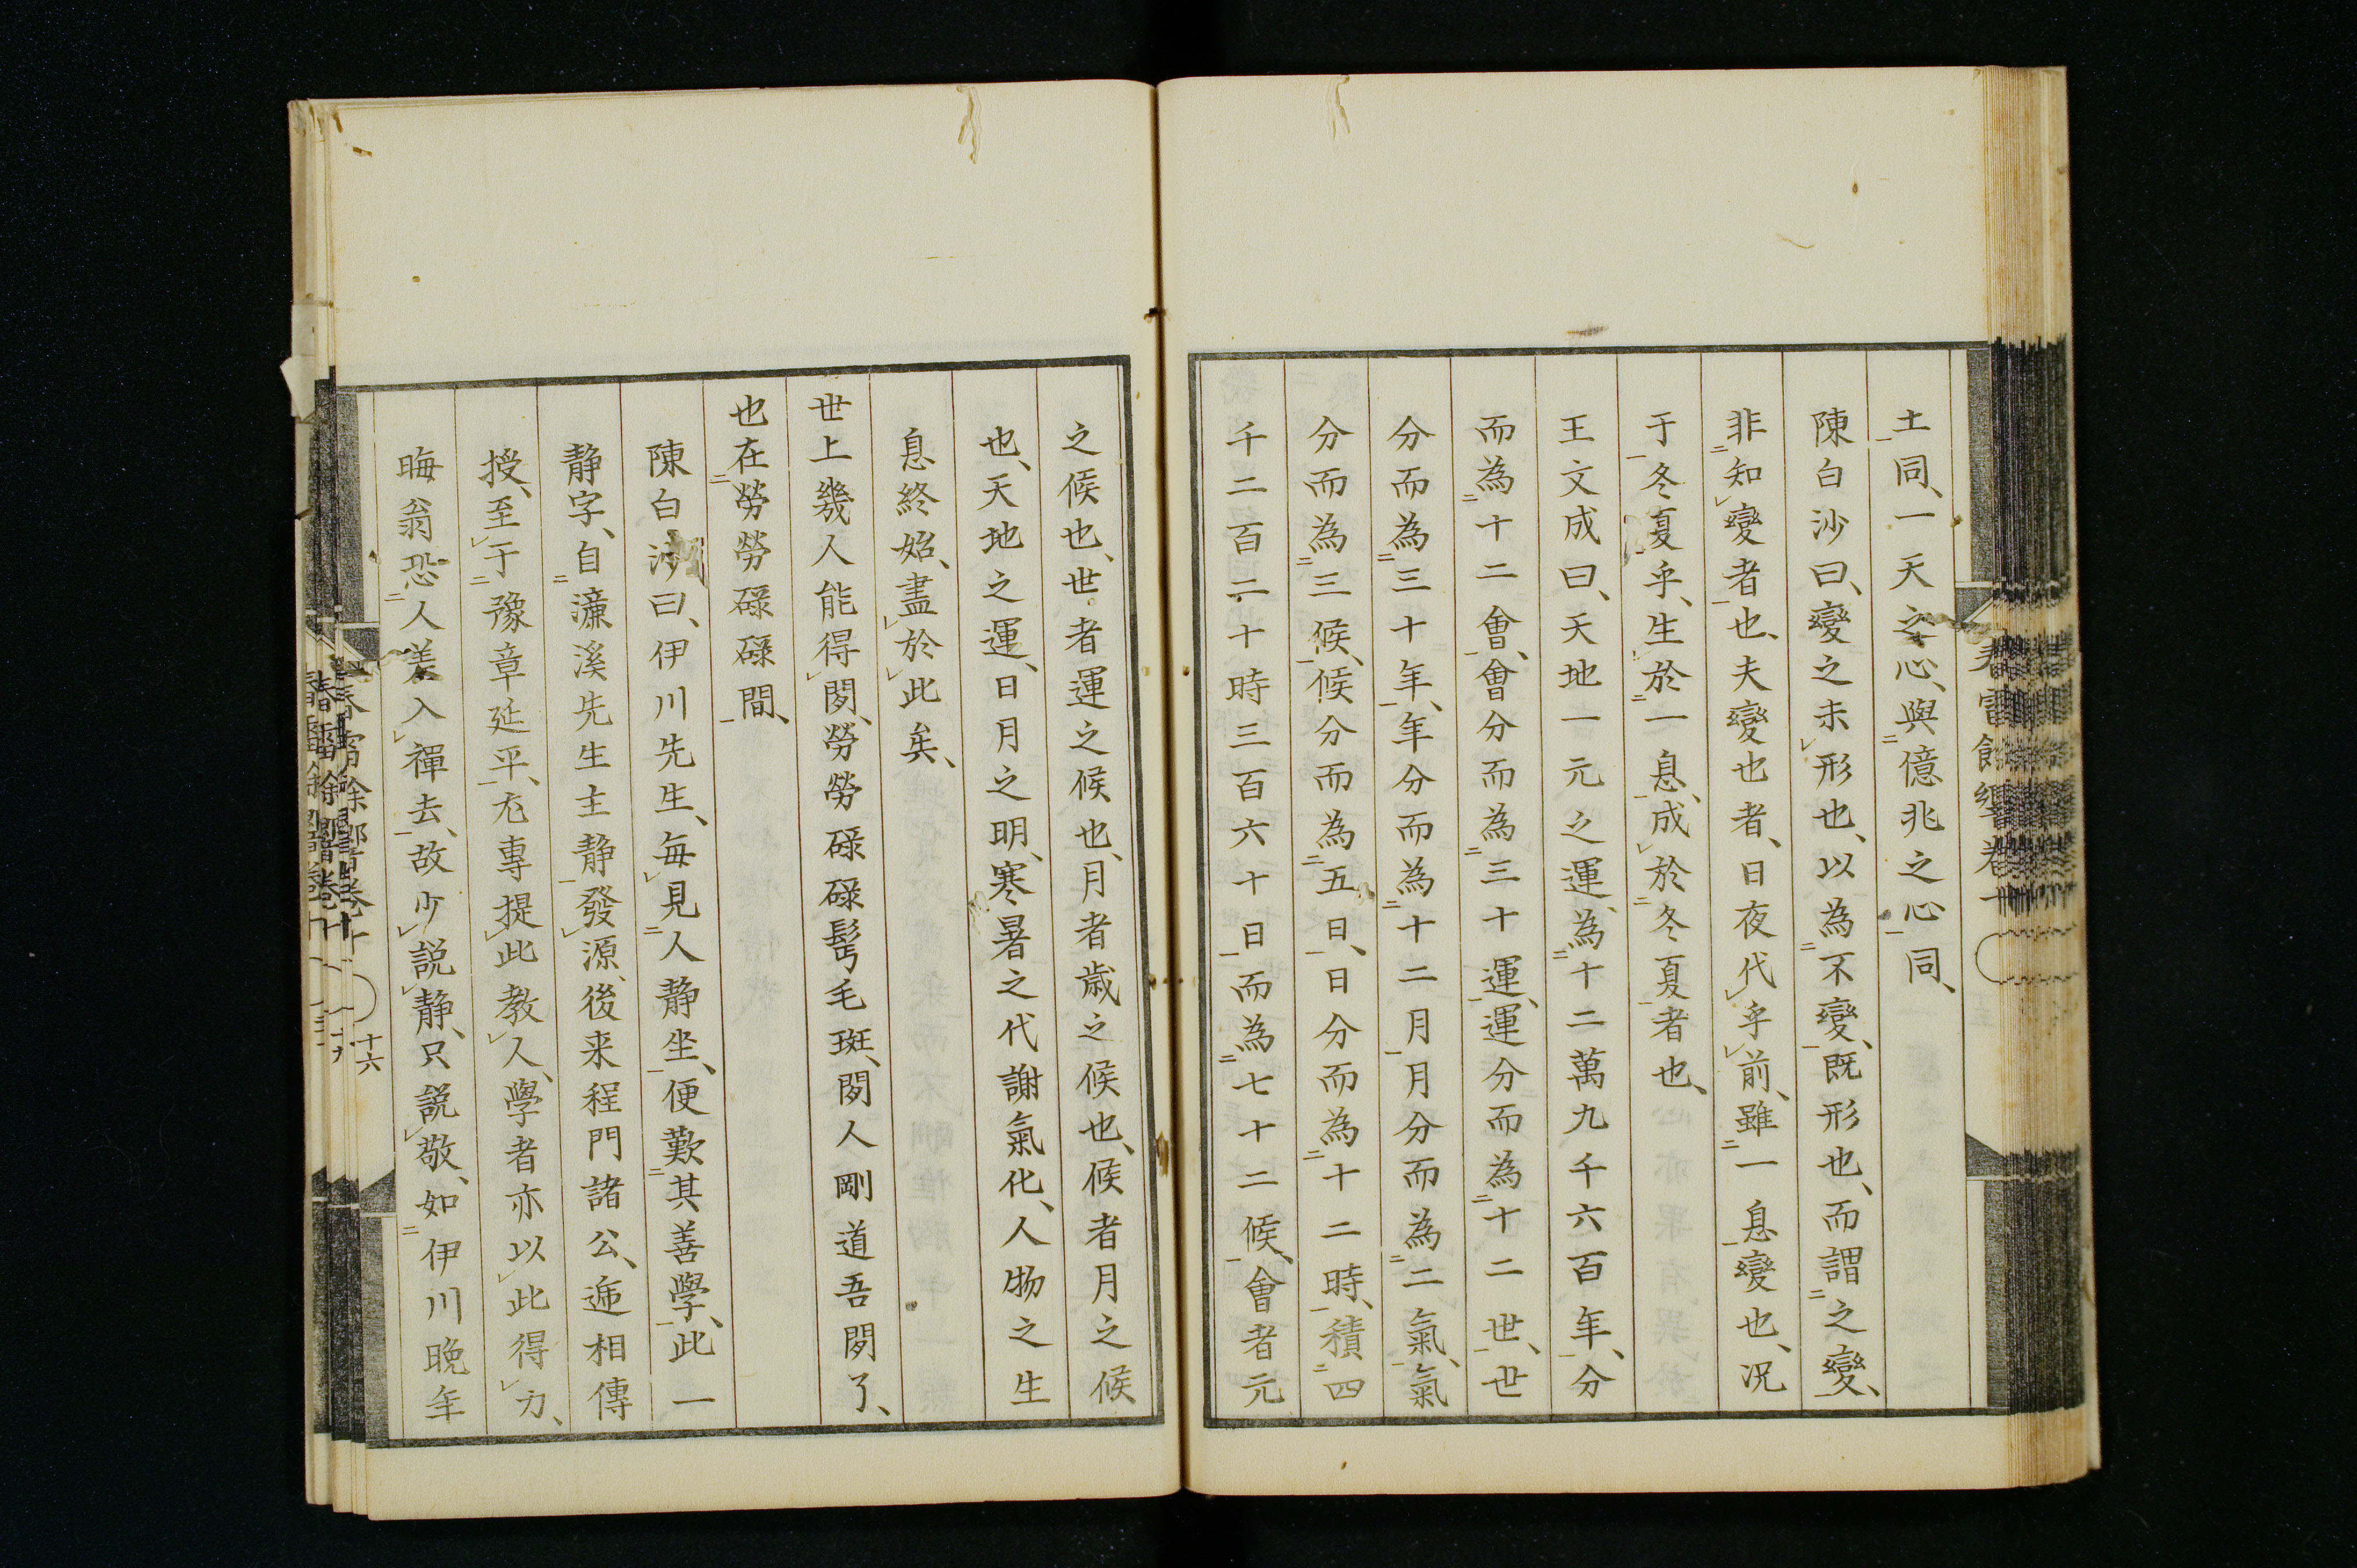 土同、一天之心、與億兆之心同、
陳白沙曰、變之未形也、以為不變、既形也、而謂之變、
非知變者也、夫變也者、日夜代乎前、雖一息變也、况
于冬夏乎、生於一息、成於冬夏者也、
王文成曰、天地一元之運、為十二萬九千六百年、分
而為十二會、會分而為三十運、運分而為十二世、世
分而為三十年、年分而為十二月、月分而為二氣、氣
分而為三候、候分而為五日、日分而為十二時、積四
千二百二十時三百六十日而為七十二候、會者元
之候也、世者運之候也、月者歳之候也、候者月之候
也、天地之運、日月之明、寒暑之代謝氣化、人物之生
息終始、盡於此矣、
世上幾人能得閑、勞勞碌碌髩毛斑、閑人剛道吾閑了、
也在勞勞碌碌間、
陳白沙曰、伊川先生、毎見人静坐、便歎其善學、此一
静字、自濂溪先生主静發源、後来程門諸公、逓相傳
授、至于豫章延平、尤專提此教人、學者亦以此得力、
晦翁恐人差入禪去、故少説静、只説敬、如伊川晩年
十六